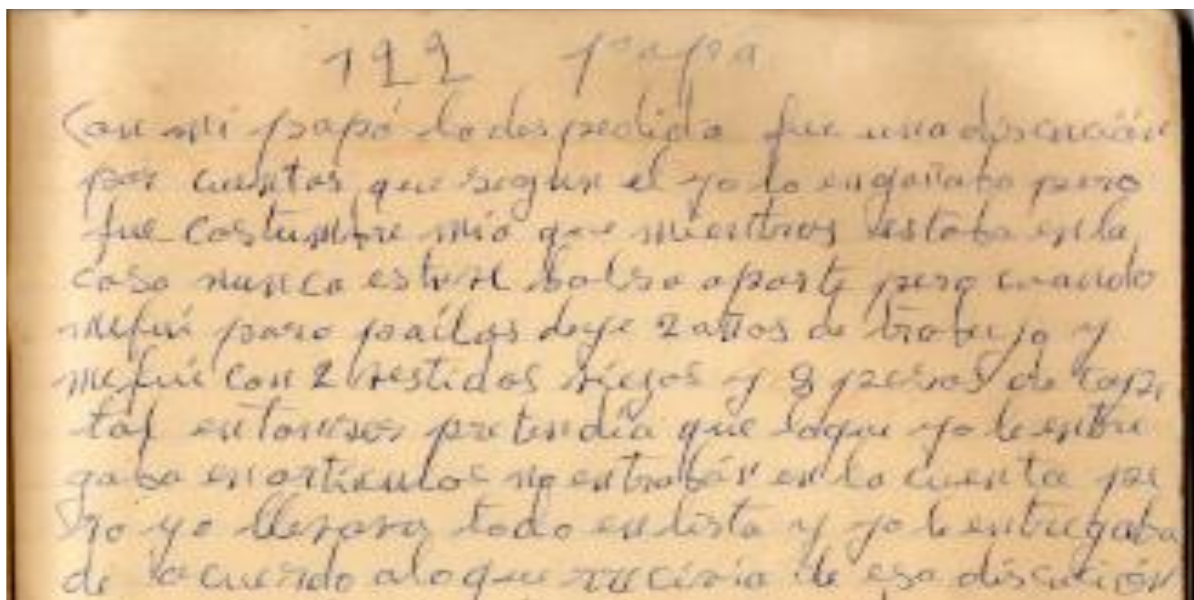 122 papa
Con mi papá la des pedida fue una discución
por cuentas que segun el yo lo engañaba pero
fue costumbre mia que mientras estaba en la
casa nunca estuve bolso aparte pero cuando
mefui para pailas deje 2 años de trabajo y
mefui con 2 vestidos viejos y 8 pesos de capi
tal entonses pretendia que loque yo le entre
gaba en articulos no entraban en la cuenta pe
ro yo llevava todo en lista y yo le entregaba
de acuerdo alo que recivia de esa discución